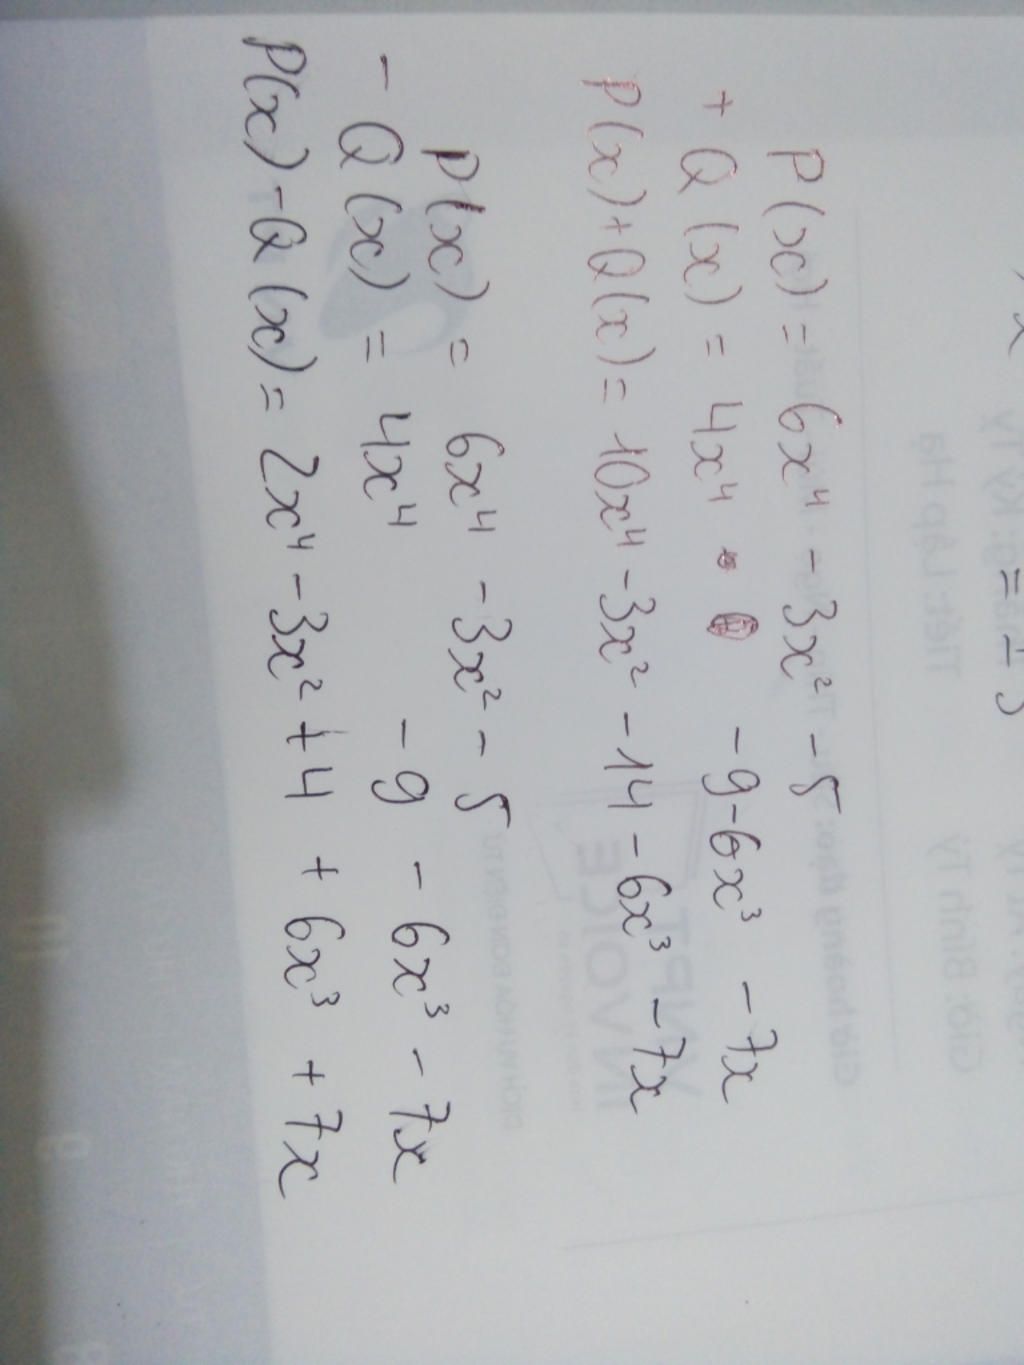 P(x) = 6x⁴ - 3x² - 5
+ Q(x) = 4x⁴ - 9 - 6x³ - 7x
P(x) + Q(x) = 10x⁴ - 3x² - 14 - 6x³ - 7x
P(x) = 6x⁴ - 3x² - 5
- Q(x) = 4x⁴ - 9 - 6x³ - 7x
P(x) - Q(x) = 2x⁴ - 3x² + 4 + 6x³ + 7x